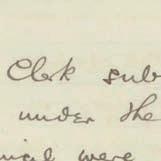 Clerk sub
under the
were